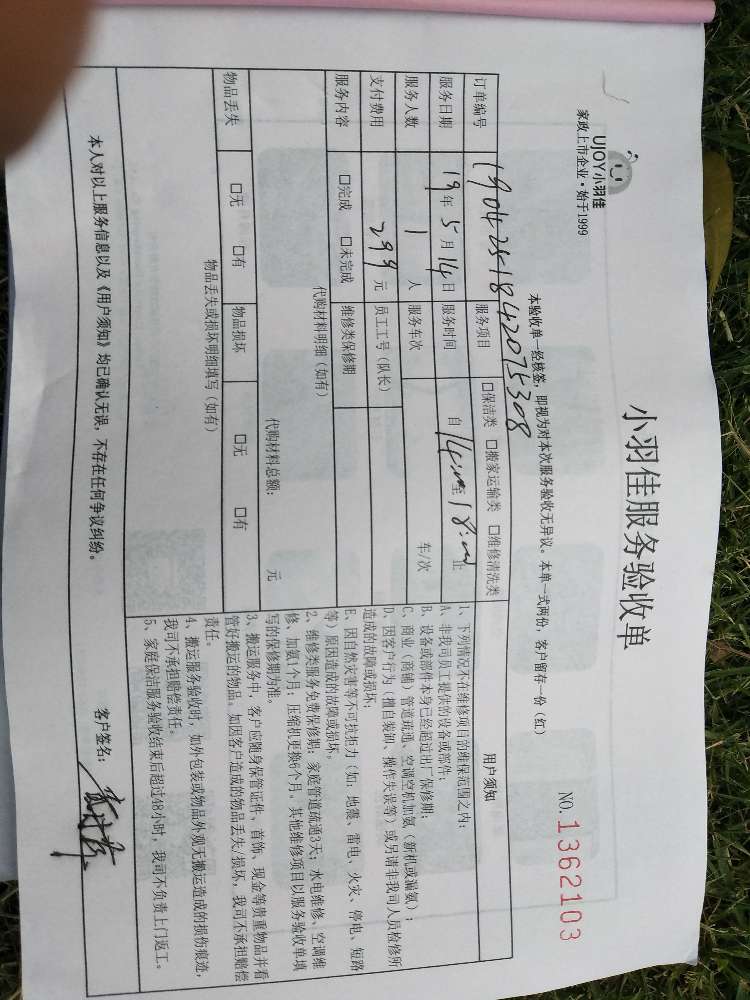 UJOY小羽佳
家政上市企业·始于1999
小羽佳服务验收单
NO.1362103
本验收单一经核签，即视为对本次服务验收无异议。本单一式两份，客户留存一份（红）
订单编号 190425184207530８
服务项目 □保洁类 □搬家运输类 □维修清洗类
服务日期 19年5月14日 服务时间 自14:00至18:00止
服务人数 1人 服务车次 车/次
支付费用 299元 员工工号（队长）
服务内容 □完成 □未完成 维修类保修期
代购材料明细（如有）
代购材料总额： 元
物品丢失 □无 □有 物品损坏 □无 □有
物品丢失或损坏明细填写（如有）
用户须知
1、下列情况不在维修项目的维保范围之内：
A、非我司员工提供的设备或部件；
B、设备或部件本身已经超过出厂保修期；
C、商业（商铺）管道疏通、空调空机加氨（新机或漏氨）；
D、因客户行为（擅自装卸、操作失误等）或另请非我司人员检修所
造成的故障或损坏；
E、因自然灾害等不可抗拒力（如：地震、雷电、火灾、停电、短路
等）原因造成的故障或损坏。
2、维修类服务免费保修期：家庭管道疏通3天；水电维修、空调维
修、加氨1个月；压缩机更换6个月。其他维修项目以服务验收单填
写的保修期为准。
3、搬运服务中，客户应随身保管证件、首饰、现金等贵重物品并看
管好搬运的物品。如因客户造成的物品丢失/损坏，我司不承担赔偿
责任。
4、搬运服务验收时，如外包装或物品外观无搬运造成的损伤痕迹，
我司不承担赔偿责任。
5、家庭保洁服务验收结束后超过48小时，我司不负责上门返工。
本人对以上服务信息以及《用户须知》均已确认无误，不存在任何争议纠纷。
客户签名：